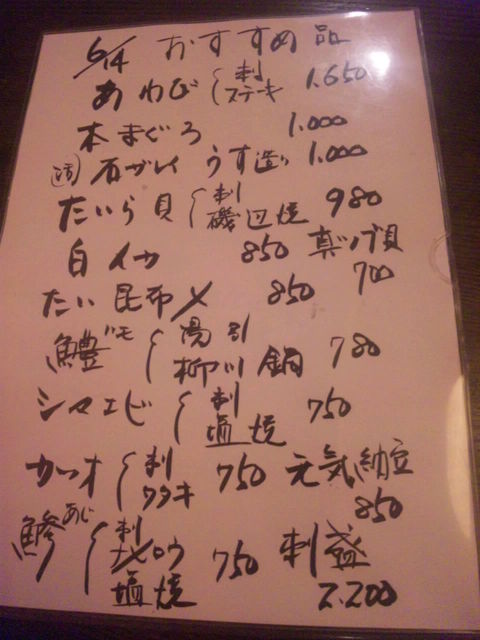 6/14 おすすめ品
あわび 刺 ステーキ 1.650
本まぐろ 1.000
活 石ガレイ うす造り 1.000
たいら貝 刺 磯辺焼 980
白イカ 850 真ツブ貝 700
たい昆布〆 850
鱧 ハモ 湯引 柳川鍋 780
シマエビ 刺 塩焼 750
カツオ 刺 タタキ 750 元気納豆 850
鰺 あじ 刺 ナメロウ 塩焼 750 刺盛 2.200